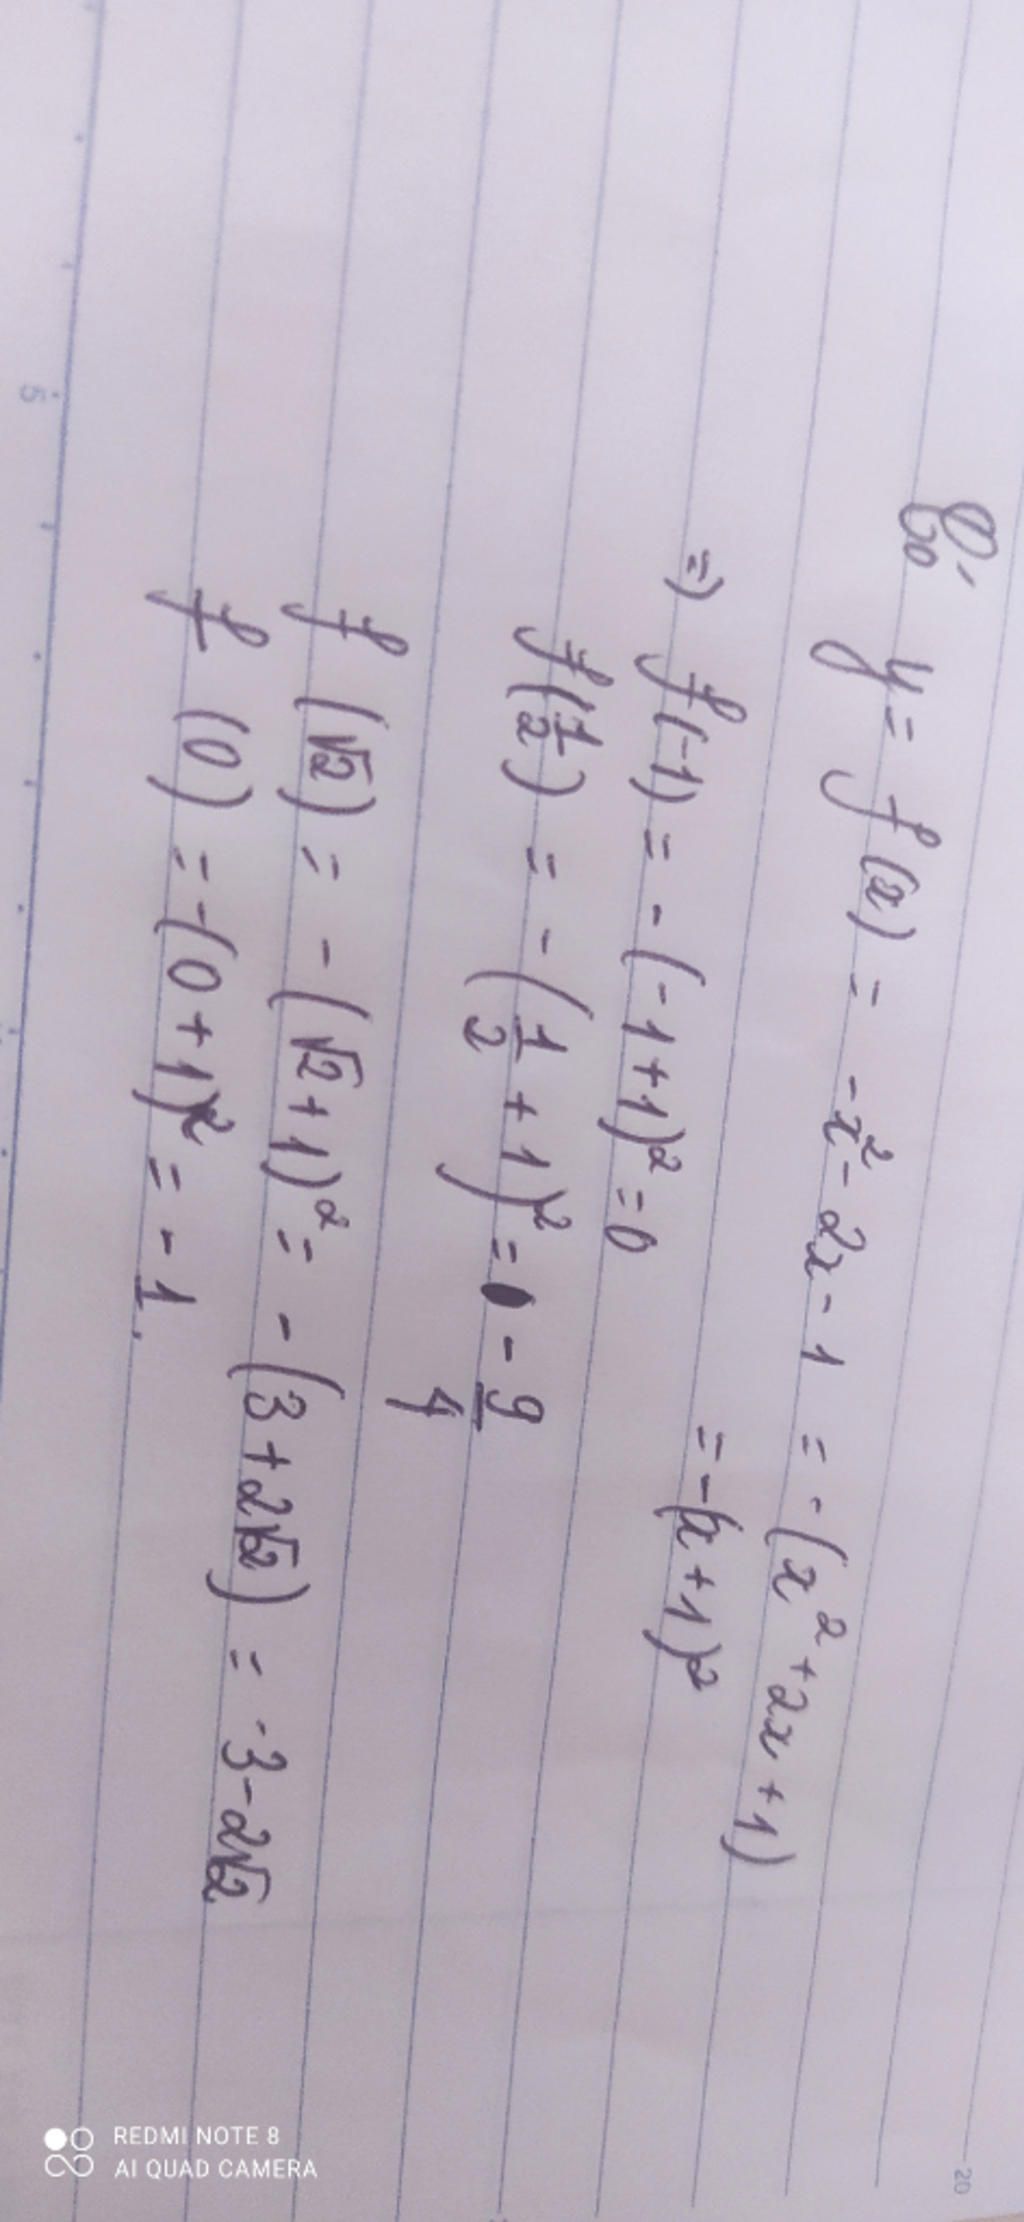 Có y = f(x) = -x² - 2x - 1 = -(x² + 2x + 1)
= -(x + 1)²
=) f(-1) = -(-1+1)² = 0
f(1/2) = -(1/2 + 1)² = -9/4
f(√2) = -(√2+1)² = -(3+2√2) = -3-2√2
f(0) = -(0+1)² = -1.
5
20
REDMI NOTE 8
AI QUAD CAMERA